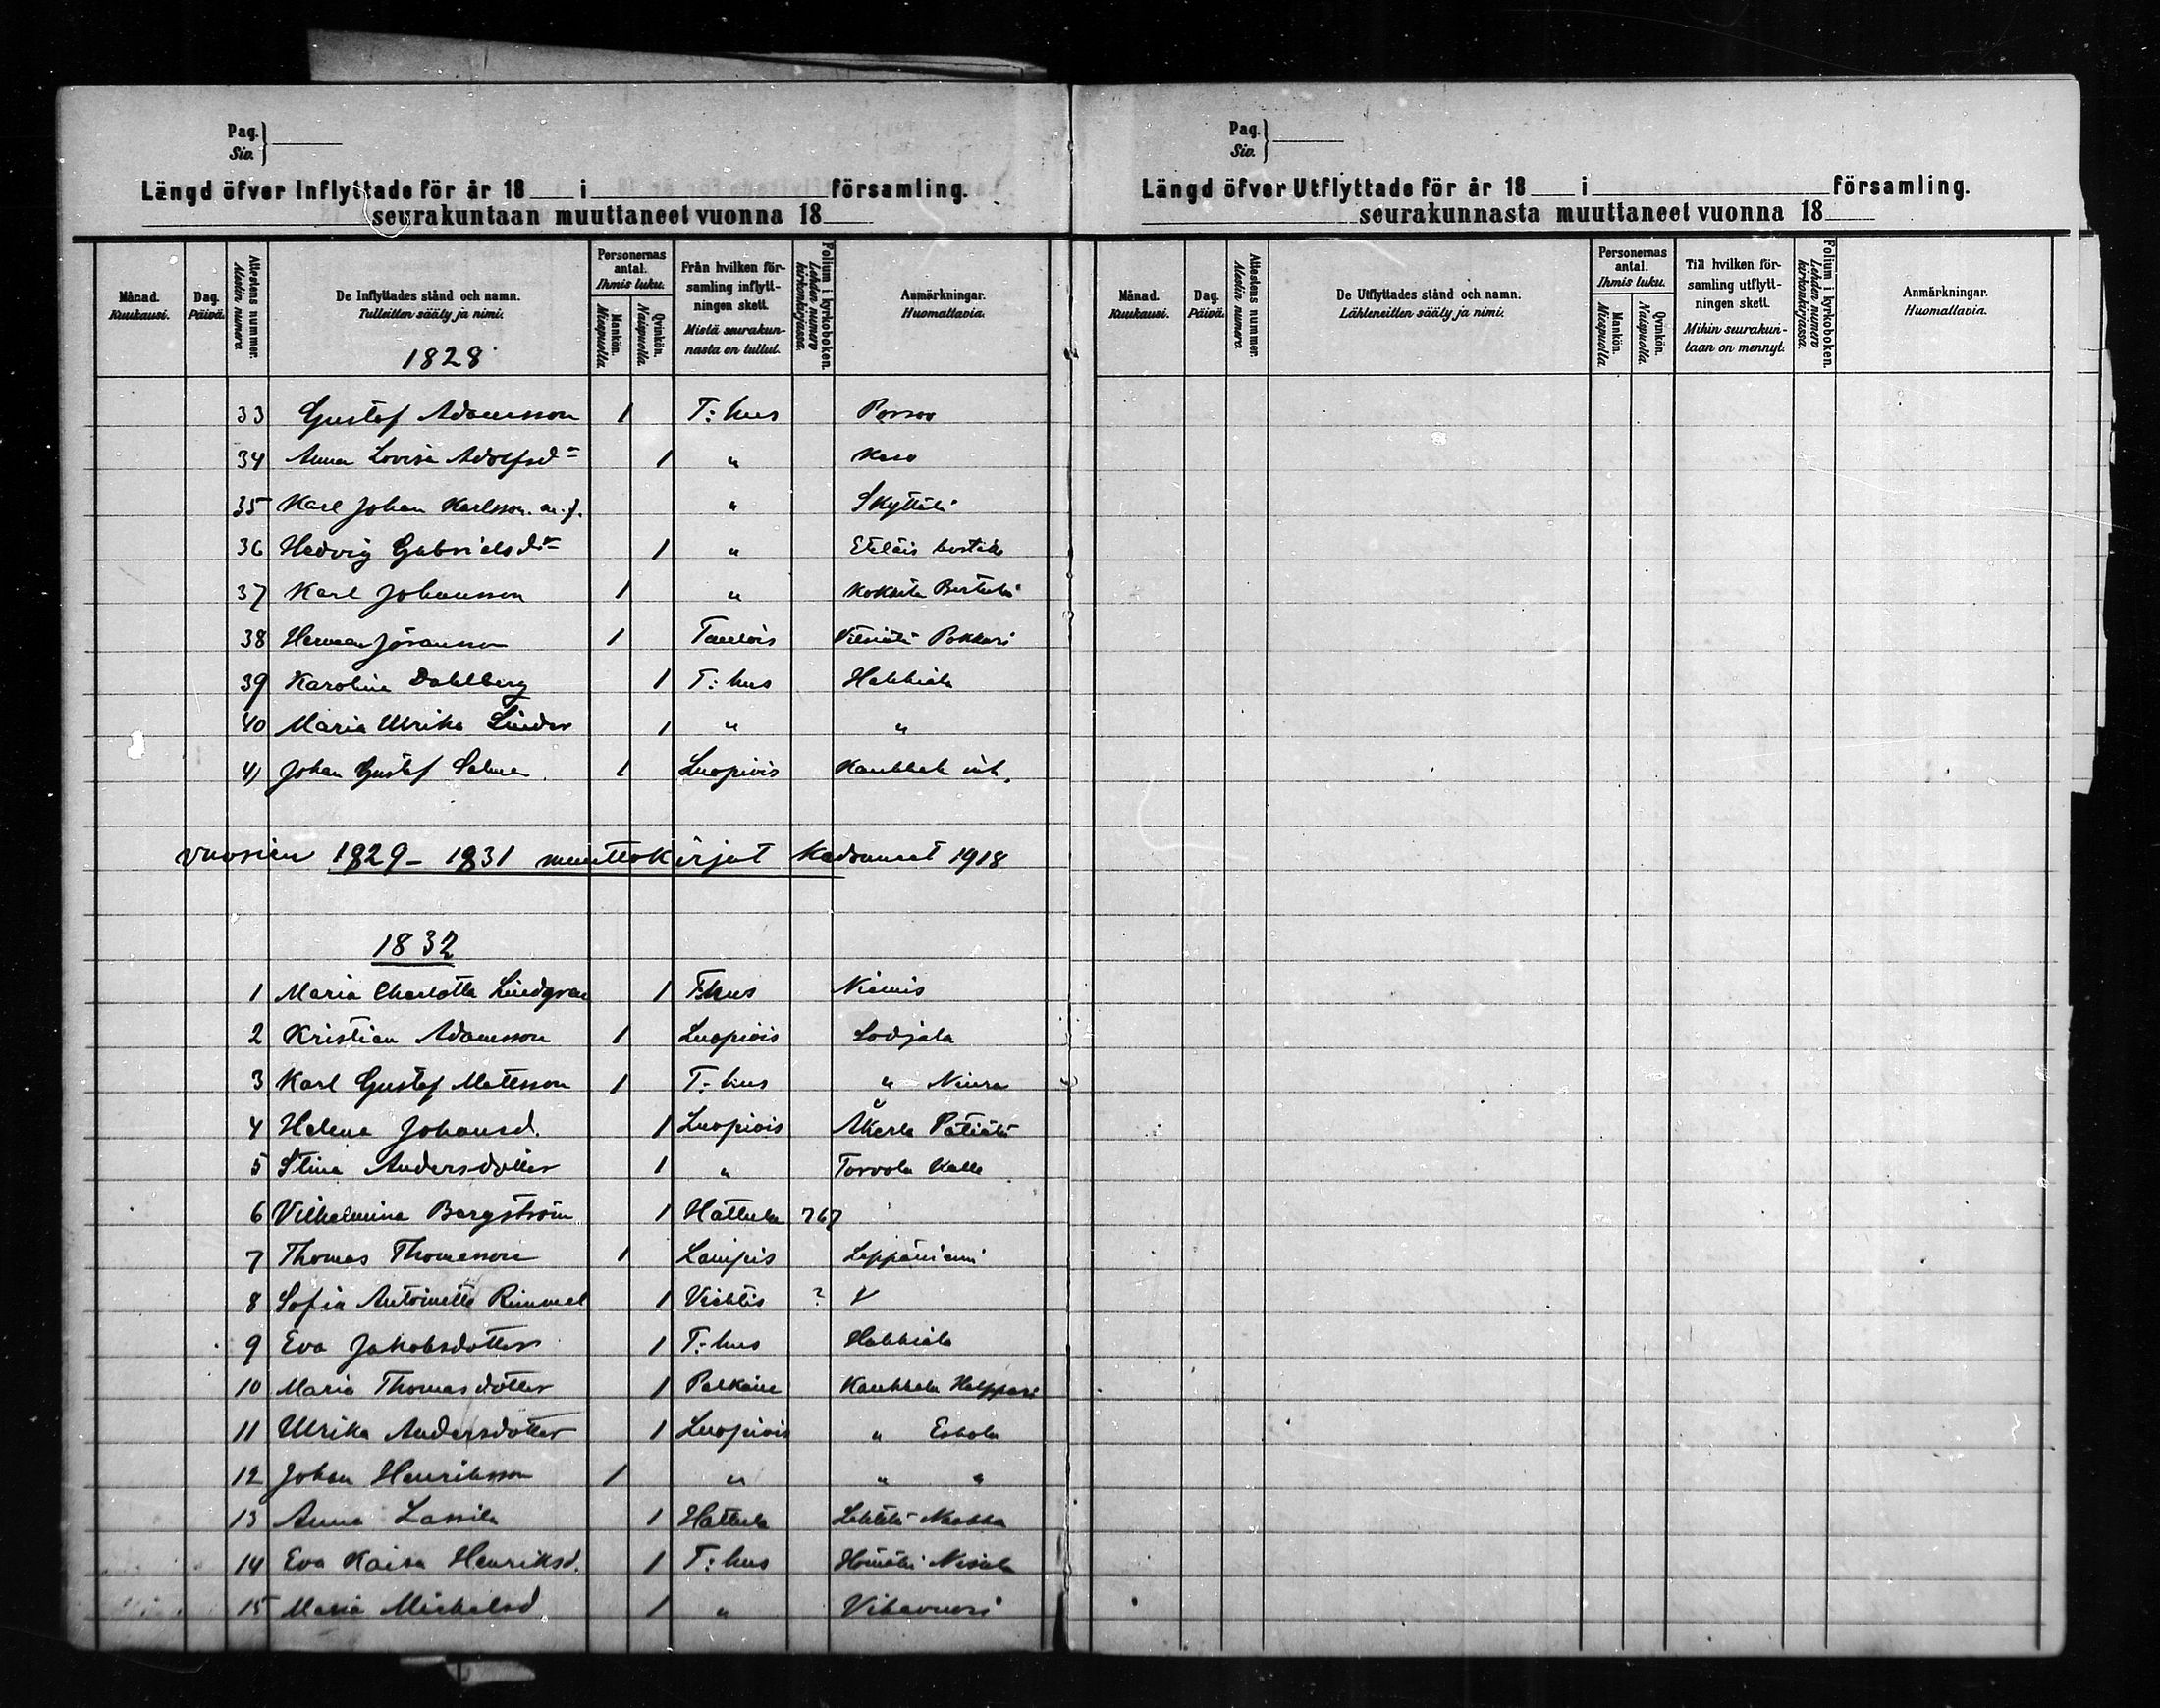 Pag.
Siv.
Längd öfver Inflyttade för år 18 i församling.
seurakuntaan muuttaneet vuonna 18
Månad. Kuukausi.
Dag. Päivä.
Attestens nummer. Alestin numero.
De Inflyttades stånd och namn.
Tulleitten sääty ja nimi.
1828
Personernas antal. Ihmis luku.
Mankön. Miespuolla.
Qvinkön. Naispuolla.
Från hvilken församling inflyttningen skett.
Mistä seurakunnasta on tullut.
Folium i kyrkoboken. Lehden numero kirkonkirjassa.
Anmärkningar. Huomattavia.
33 Gustaf Adamsson 1 T:hus Porsoo
34 Anna Lovisa Adolfsd:r 1 " Kaso
35 Karl Johan Karlsson m.f. " Skyttälä
36 Hedvig Gabrielsd:r 1 " Eteläis
37 Karl Johansson 1 " Kokkila Perttula
38 Herman Göransson 1 Tavlois Vitsiälä Pokkari
39 Karolina Dahlberg 1 T:hus Hahkiala
40 Maria Ulrika Linder 1 " "
41 Johan Gustaf Salmen 1 Luopiois Kaukkala inh.
Vuosien 1829-1831 muuttokirjat kadonneet 1918
1832
1 Maria Charlotta Lindgren 1 T:hus Niemis
2 Kristian Adamsson 1 Luopiois Sodjala
3 Karl Gustaf Mattsson 1 T:hus " Niura
4 Helena Johansd. 1 Luopiois Åkerla Pätiälä
5 Stina Andersdotter 1 " Torvola Kalle
6 Vilhelmina Bergström 1 Hattula 767
7 Thomas Thomasson 1 Lampis Leppäniemi
8 Sofia Antoinette Rimmel 1 Vichtis ? V
9 Eva Jakobsdotter 1 T:hus Hahkiala
10 Maria Thomasdotter 1 Pelkäne Kaukkala Helppari
11 Ulrika Andersdotter 1 Luopiois " Eskola
12 Johan Henriksson 1 " " "
13 Anna Lassila 1 Hattula Lehtelä Naakka
14 Eva Kaisa Henriksd. 1 T:hus
15 Maria Mickelsd 1 " Vihavuori
Pag.
Siv.
Längd öfver Utflyttade för år 18 i församling.
seurakunnasta muuttaneet vuonna 18
Månad. Kuukausi.
Dag. Päivä.
Attestens nummer. Alestin numero.
De Utflyttades stånd och namn.
Lähteneitten sääty ja nimi.
Personernas antal. Ihmis luku.
Mankön. Miespuolla.
Qvinkön. Naispuolla.
Till hvilken församling utflyttningen skett.
Mihin seurakuntaan on mennyt.
Folium i kyrkoboken. Lehden numero kirkonkirjassa.
Anmärkningar. Huomattavia.